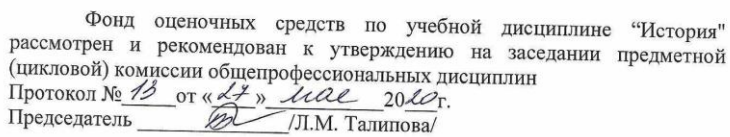 Фонд оценочных средств по учебной дисциплине “История"
рассмотрен и рекомендован к утверждению на заседании предметной
(цикловой) комиссии общепрофессиональных дисциплин
Протокол № 13 от «27» мае 2020г.
Председатель /Л.М. Талипова/